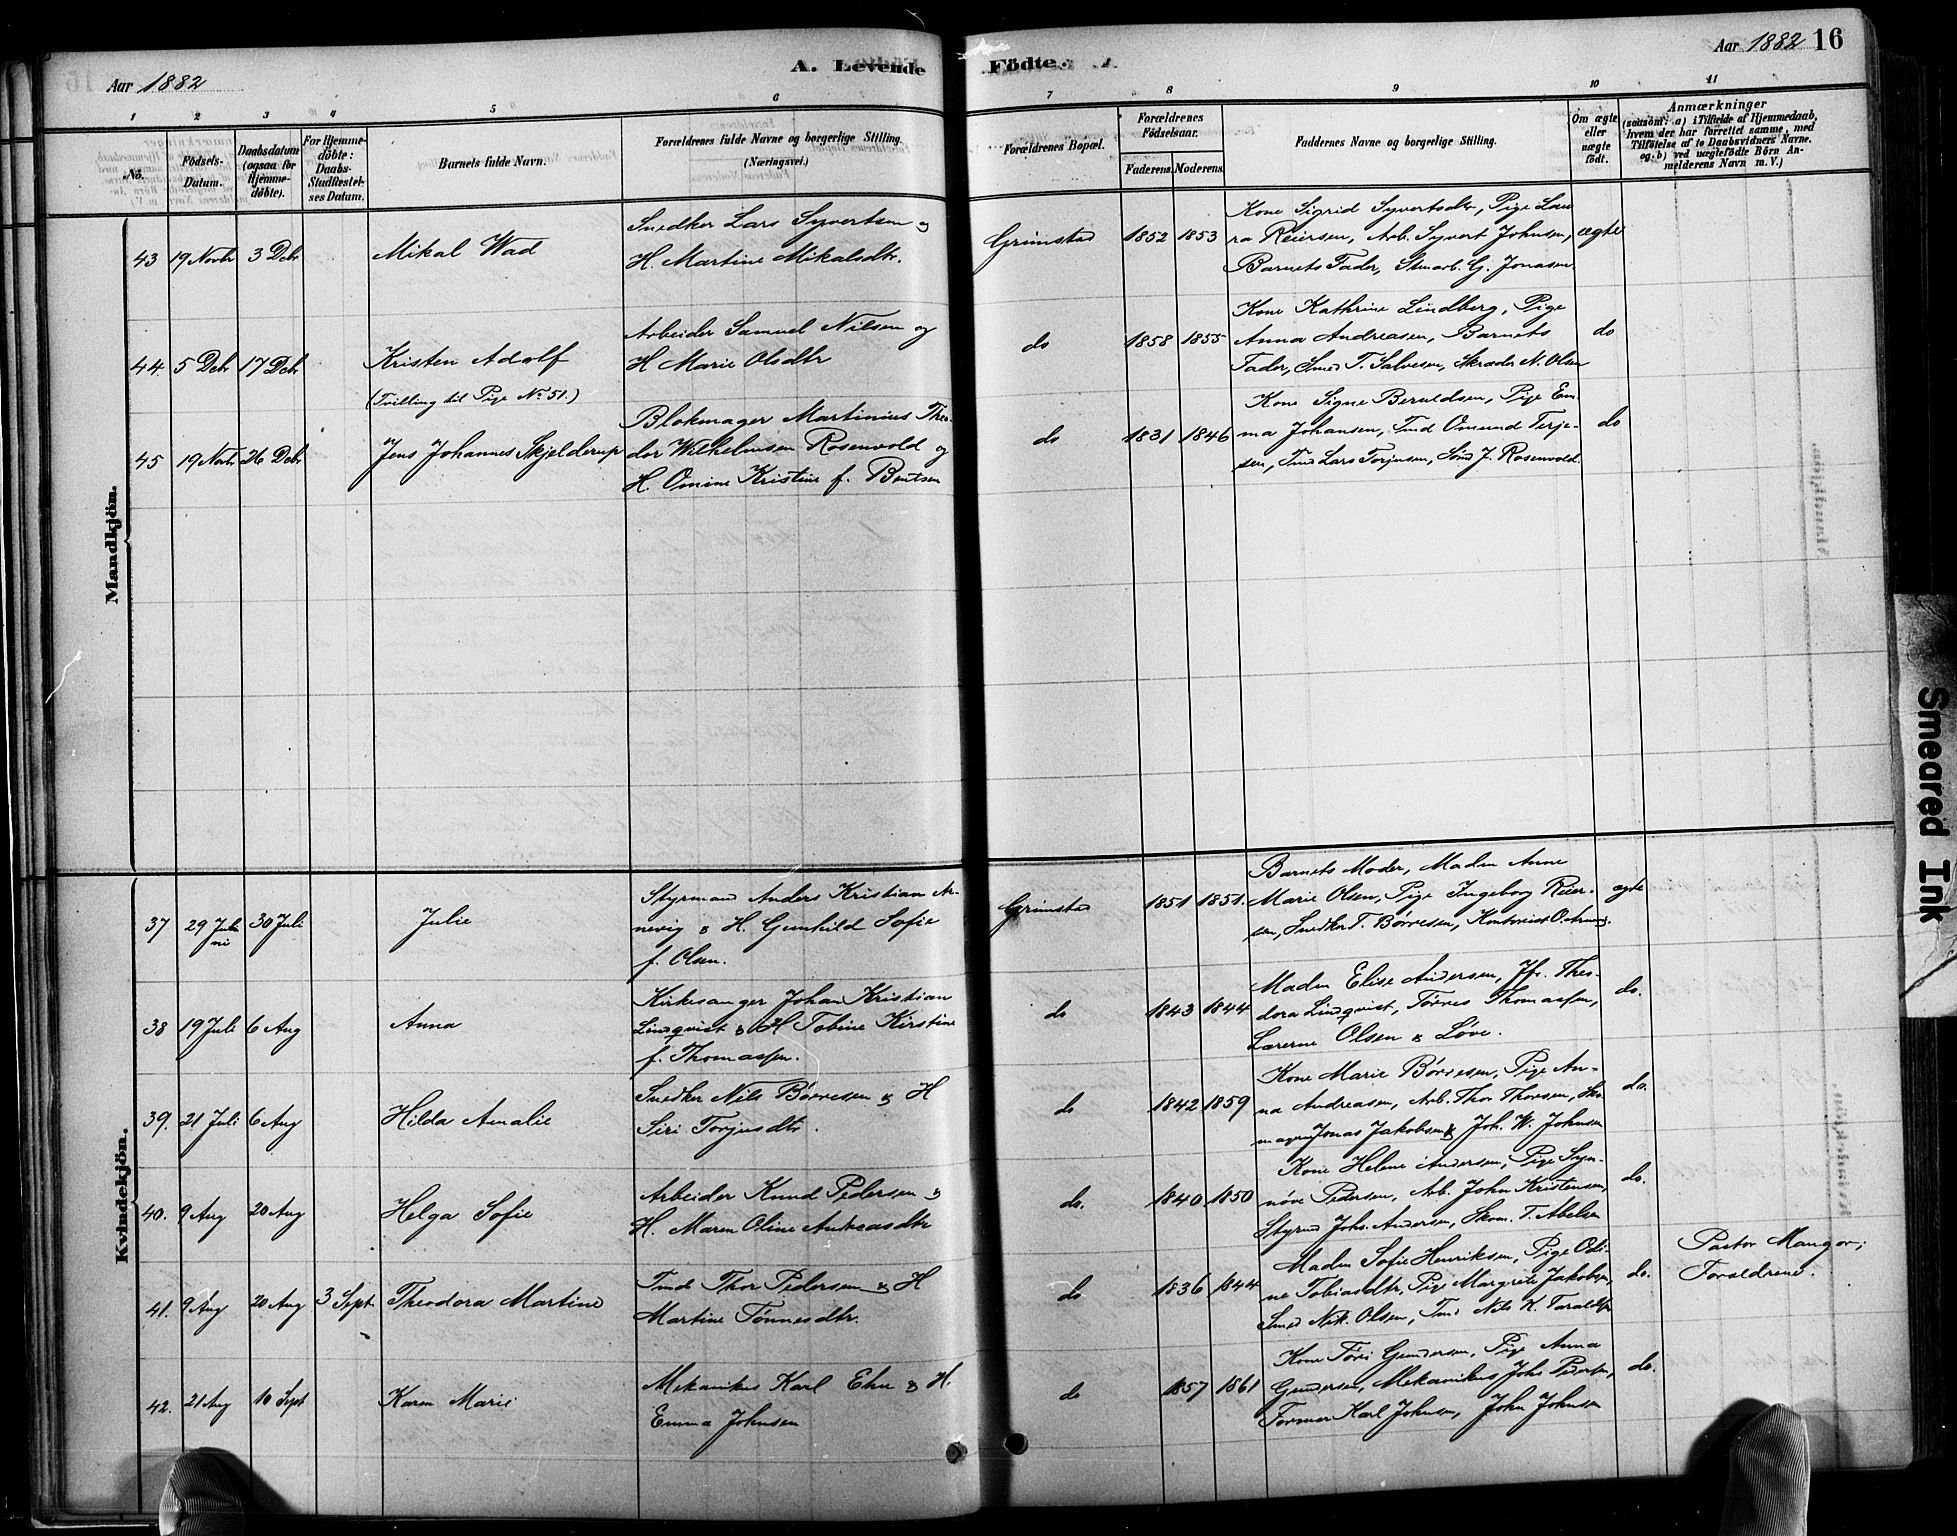 Aar 1882
A. Levende
Födte.
Aar 1882
16
1 2 3 4 5 6 7 8 9 10 11
No.
Födsels-
Datum.
Daabsdatum
(ogsaa for
Hjemme-
döbte).
For Hjemme-
döbte:
Daabs-
Stadfæstel-
ses Datum.
Barnets fulde Navn.
Forældrenes fulde Navne og borgerlige Stilling.
(Næringsvei.)
Forældrenes Bopæl.
Forældrenes
Födselsaar.
Faderens. Moderens.
Faddernes Navne og borgerlige Stilling.
Om ægte
eller
uægte
födt.
Anmærkninger
(saasom: a) i Tilfælde af Hjemmedaab,
hvem der har forrettet samme, med
Tilföielse af to Daabsvidners Navne,
og b) ved uægtefödte Börn An-
melderens Navn m. V.)
Mandkjön.
43 19 Novbr 3 Dcbr
Mikal Wad
Snedker Lars Syvertsen og
H. Martine Mikalsdtr.
Grimstad 1852 1853
Kone Sigrid Syvertsdtr, Pige Lau
ra Reiersen, Arb. Syvert Johnsen,
Barnets Fader, Stenarb. G. Jonasen.
ægte
44. 5 Dcbr 17 Dcbr
Kristen Adolf
Arbeider Samuel Nilsen og
H Marie Olsdtr
do 1858 1855
Kone Kathrine Lindberg, Pige
Anna Andreasen, Barnets
Fader, Smed T. Salvesen, Skræder N. Olsen
do
45 19 Novbr 26 Dcbr
(Tvilling til Pige No 51.)
Jens Johannes Skjelderup
Blokmager Martinius Theo-
dor Wilhelmsen Rosenvold og
H. Omine Kristine f. Bentsen
do 1831 1846
Kone Signe Beruldsen, Pige Em-
ma Johansen, Tmd Omund Terje-
sen, Tmd Lars Torjusen, Smd J. Rosenvold.
do
Kvindekjön.
37 29 Juli
ni
30 Juli
Julie
Styrmand Anders Kristian Ar-
nevig & H. Gunhild Sofie
f. Olsen.
Grimstad 1851 1851.
Barnets Moder, Madm Anne
Marie Olsen, Pige Ingeborg Reier-
sen, Snedker T. Børresen, Kontorist O. Arnevig.
ægte
38 19 Juli 6 Aug
Anna
Kirkesanger Johan Kristian
Lindqvist & H Tobine Kirstine
f. Thomassen.
do 1843 1844
Madm Elise Andersen, Jfr. Theo-
dora Lindqvist, Tørres Thomassen,
Lærerne Olsen & Løve.
do.
39. 21 Juli 6 Aug
Hilda Amalie
Snedker Nils Børresen & H
Siri Torjusdtr.
do 1842 1859
Kone Marie Børresen, Pige An-
na Andreasen, Arb. Thor Thorsen, Sko
magerne Jonas Jakobsen & Joh. W. Johnsen
do.
40. 9 Aug 20 Aug
Helga Sofie
Arbeider Knud Pedersen &
H. Maren Oline Andreasdtr
do. 1840 1850
Kone Helene Andersen, Pige Syn-
növe Pedersen, Arb. John Kristensen,
Styrmd Johs. Andersen, Skom. T. Abelsen
do.
41. 9 Aug 20 Aug 3 Sept
Theodora Martine
Tmd Thor Pedersen & H
Martine Tönnesdtr.
do 1836 1844
Madm Sofie Henriksen, Pige Odi-
ne Tobiasdtr, Pige Margrete Jakobsen,
Smed Nik. Olsen, Tmd Nils K. Taraldsen
do.
Pastor Mangor;
Forældrene.
42. 21 Aug 10 Sept
Karen Marie
Mekanikus Karl Ehn & H.
Emma Johnsen
do 1857 1861
Kone Töri Gundersen, Pige Anna
Gundersen, Mekanikus Johs Pedersen,
Former Karl Johnsen, John Johnsen
do.
Smeared Ink